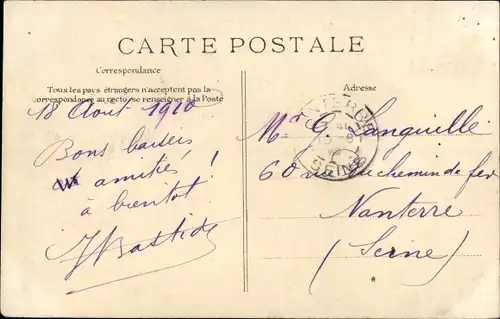 CARTE POSTALE
Correspondance
Tous les pays étrangers n'acceptent pas la
correspondance au recto se renseigner à la Poste
Adresse
18 Aout 1910
Bons baisers
et amitiés !
à bientot
Bastide
NANTERRE
SEINE
Mr G Languille
60 rue du chemin de fer
Nanterre
(Seine)